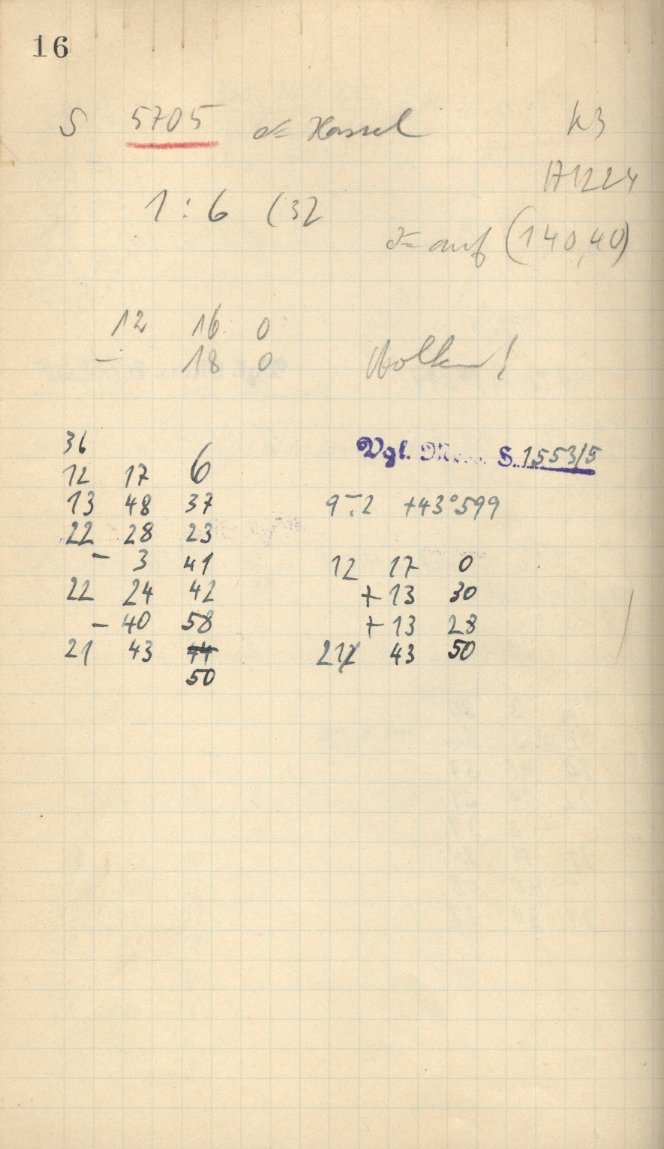 16
S 5705 Hassel
k3
171224
1 : 6 (32
auf (140,40)
12 16 0
- 18 0
36
12 17 6
13 48 37
22 28 23
- 3 41
22 24 42
- 40 58
21 43 44
50
Vgl. S. 1553/5
9 2 +43°599
12 17 0
+ 13 30
+ 13 28
21 43 50